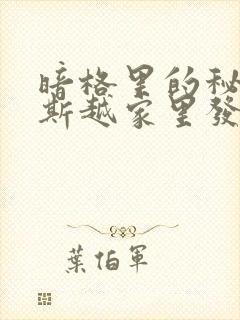 暗格里的秘
斯越家里發
葉伯軍